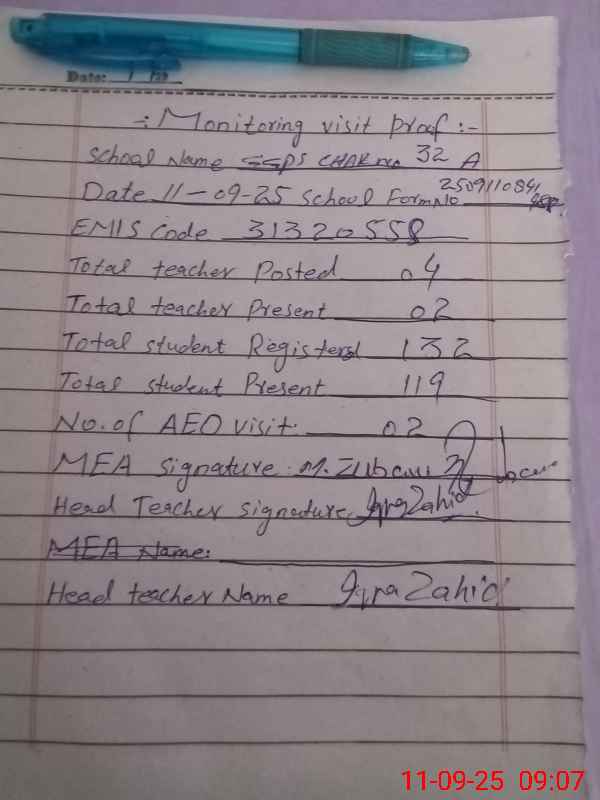 Date: / /20
÷ Monitoring visit proof :-
School Name SSPS CHAK no 32 A
Date 11-09-25 School Form No 2509110841
EMIS Code 31320558
Total teacher Posted 04
Total teacher Present 02
Total student Registerd 132
Total student Present 119
No. of AEO visit. 02
MEA signature. M. Zubair
Head Teacher signature Iqra Zahid
MEA Name:
Head teacher Name Iqra Zahid
11-09-25 09:07